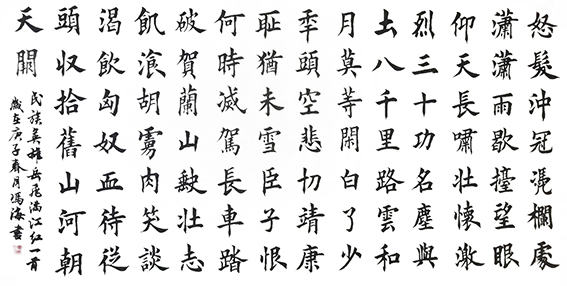 怒髮沖冠凭欄處
瀟瀟雨歇擡望眼
仰天長嘯壯懷激
烈三十功名塵與
土八千里路雲和
月莫等閑白了少
秊頭空悲切靖康
耻猶未雪臣子恨
何時滅駕長車踏
破賀蘭山缺壯志
飢湌胡虜肉笑談
渴飲匈奴血待從
頭収拾舊山河朝
天闕
民族英雄岳飛滿江红一首
歲在庚子春月馮海書